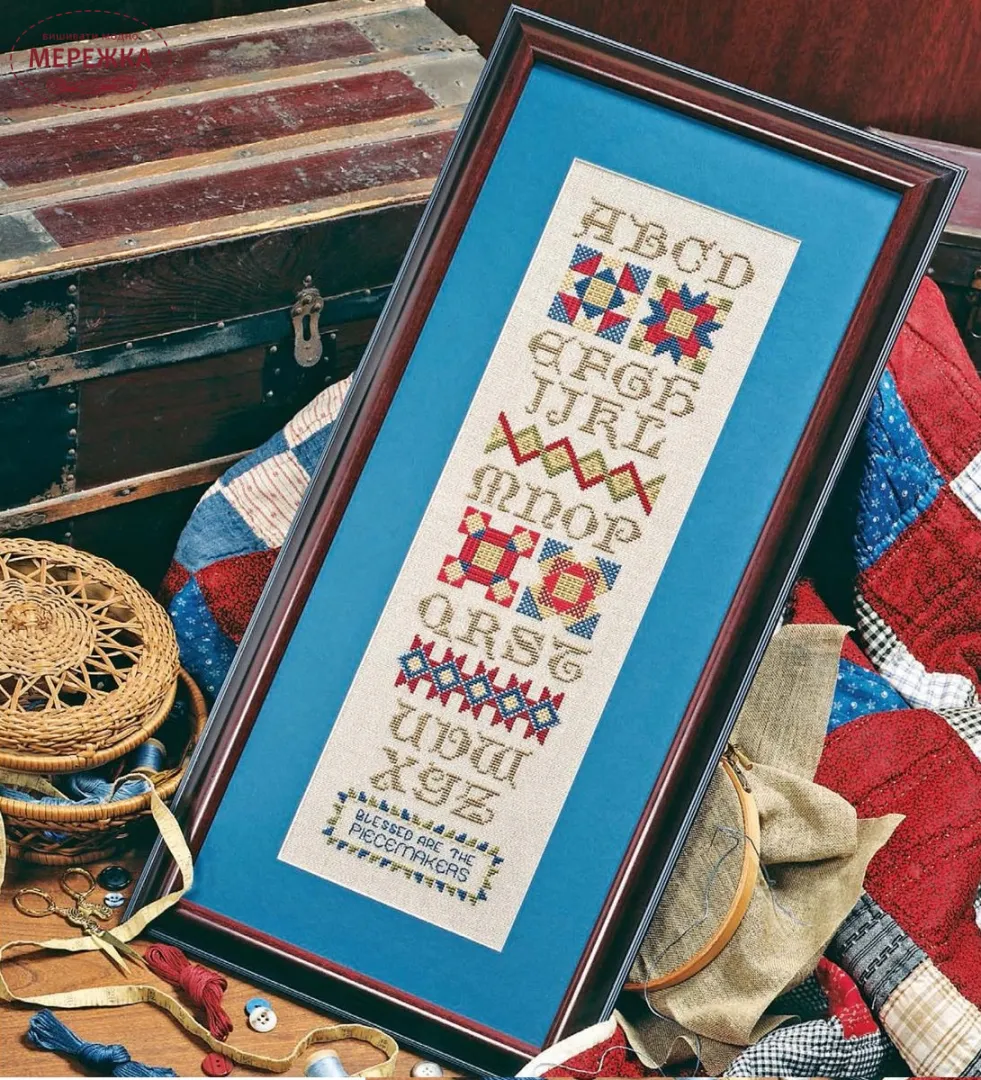 вишивати модно
МЕРЕЖКА
ABCD
EFGH
IJKL
MNOP
QRST
UVW
XYZ
BLESSED ARE THE
PIECEMAKERS